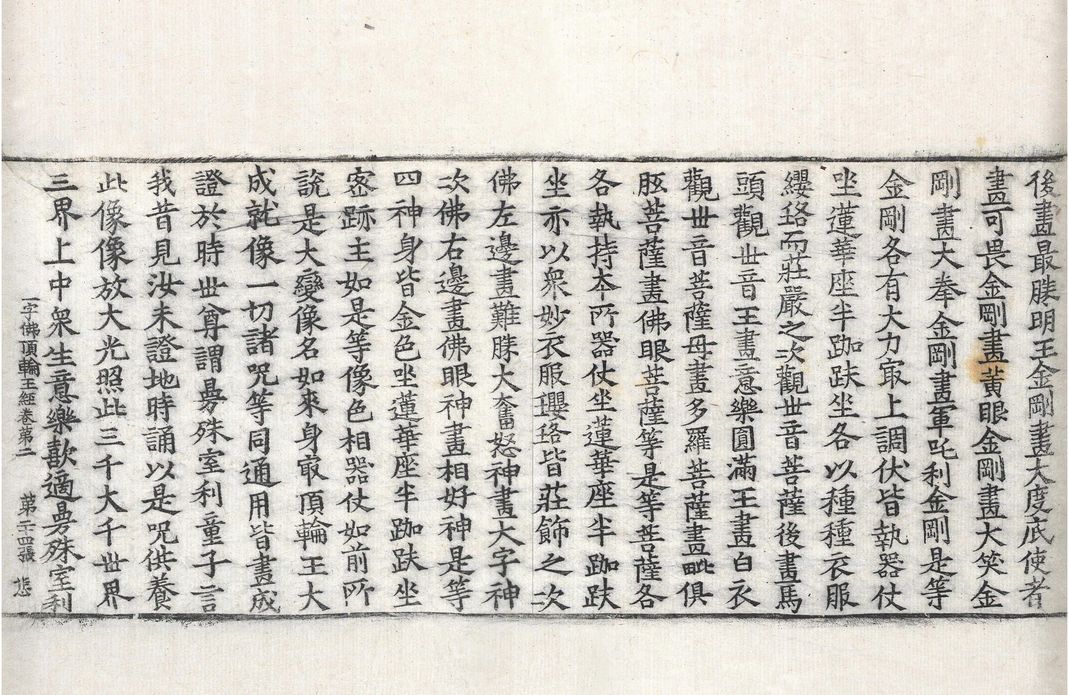 後畫最勝明王金剛畫大度底使者
畫可畏金剛畫黃眼金剛畫大笑金
剛畫大奉金剛畫軍吒利金剛是等
金剛各有大力㝡上調伏皆執器仗
坐蓮華座半跏趺坐各以種種衣服
纓珞而莊嚴之次觀世音菩薩後畫馬
頭觀世音王畫意樂圓滿王畫白衣
觀世音菩薩母畫多羅菩薩畫毗俱
胝菩薩畫佛眼菩薩等是等菩薩各
各執持本所器仗坐蓮華座半跏趺
坐亦以衆妙衣服瓔珞皆莊飾之次
佛左邊畫難勝大奮怒神畫大字神
次佛右邊畫佛眼神畫相好神是等
四神身皆金色坐蓮華座半跏趺坐
密跡主如是等像色相器仗如前所
說是大變像名如來身㝡頂輪王大
成就像一切諸呪等同通用皆畫成
證於時世尊謂曼殊室利童子言
我昔見汝未證地時誦以是呪供養
此像像放大光照此三千大千世界
三界上中衆生意樂歡適曼殊室利
一字佛頂輪王經卷第二　第二十四張　悲